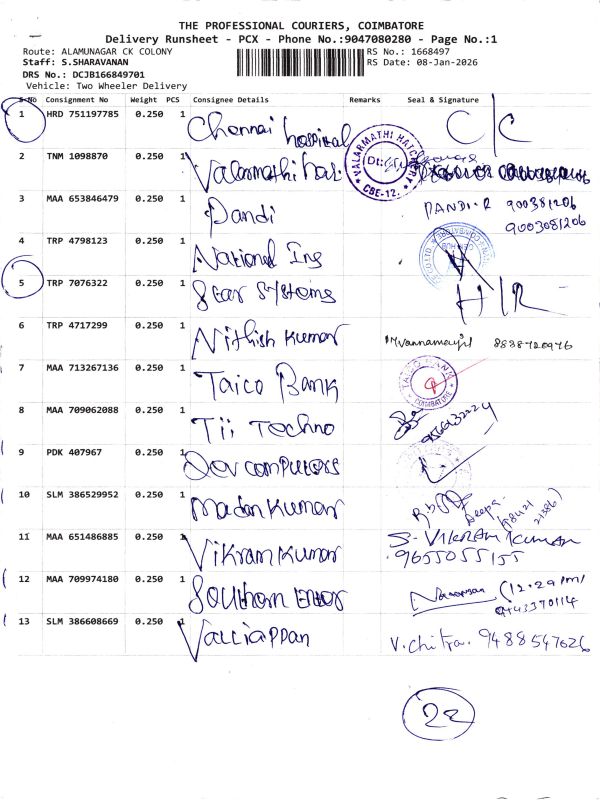 THE PROFESSIONAL COURIERS, COIMBATORE
Delivery Runsheet - PCX - Phone No.:9047080280 - Page No.:1
Route: ALAMUNAGAR CK COLONY
RS No.: 1668497
Staff: S.SHARAVANAN
RS Date: 08-Jan-2026
DRS No.: DCJB166849701
Vehicle: Two Wheeler Delivery
S.No Consignment No Weight PCS Consignee Details Remarks Seal & Signature
1 HRD 751197785 0.250 1 Chennai hospital C/C
2 TNM 1098870 0.250 1 Valarmathi hat.
VALARMATHI HATCHERY CBE-12.
3 MAA 653846479 0.250 1 Pandi PANDI.R 900381206
9003081206
4 TRP 4798123 0.250 1 National Ins
5 TRP 7076322 0.250 1 Star Systems H/R
6 TRP 4717299 0.250 1 Nithish Kumar 8838720976
7 MAA 713267136 0.250 1 Taico Bank
TAICO BANK COIMBATORE
8 MAA 709062088 0.250 1 Tii Techno
9 PDK 407967 0.250 1 Dev computers
10 SLM 386529952 0.250 1 Madan Kumar Deepa
11 MAA 651486885 0.250 1 Vikram Kumar S. Vikram Kumar
9655055155
12 MAA 709974180 0.250 1 Southern (12.29 pm)
9143370114
13 SLM 386608669 0.250 1 Valliappan V. Chitra. 9488547626
22